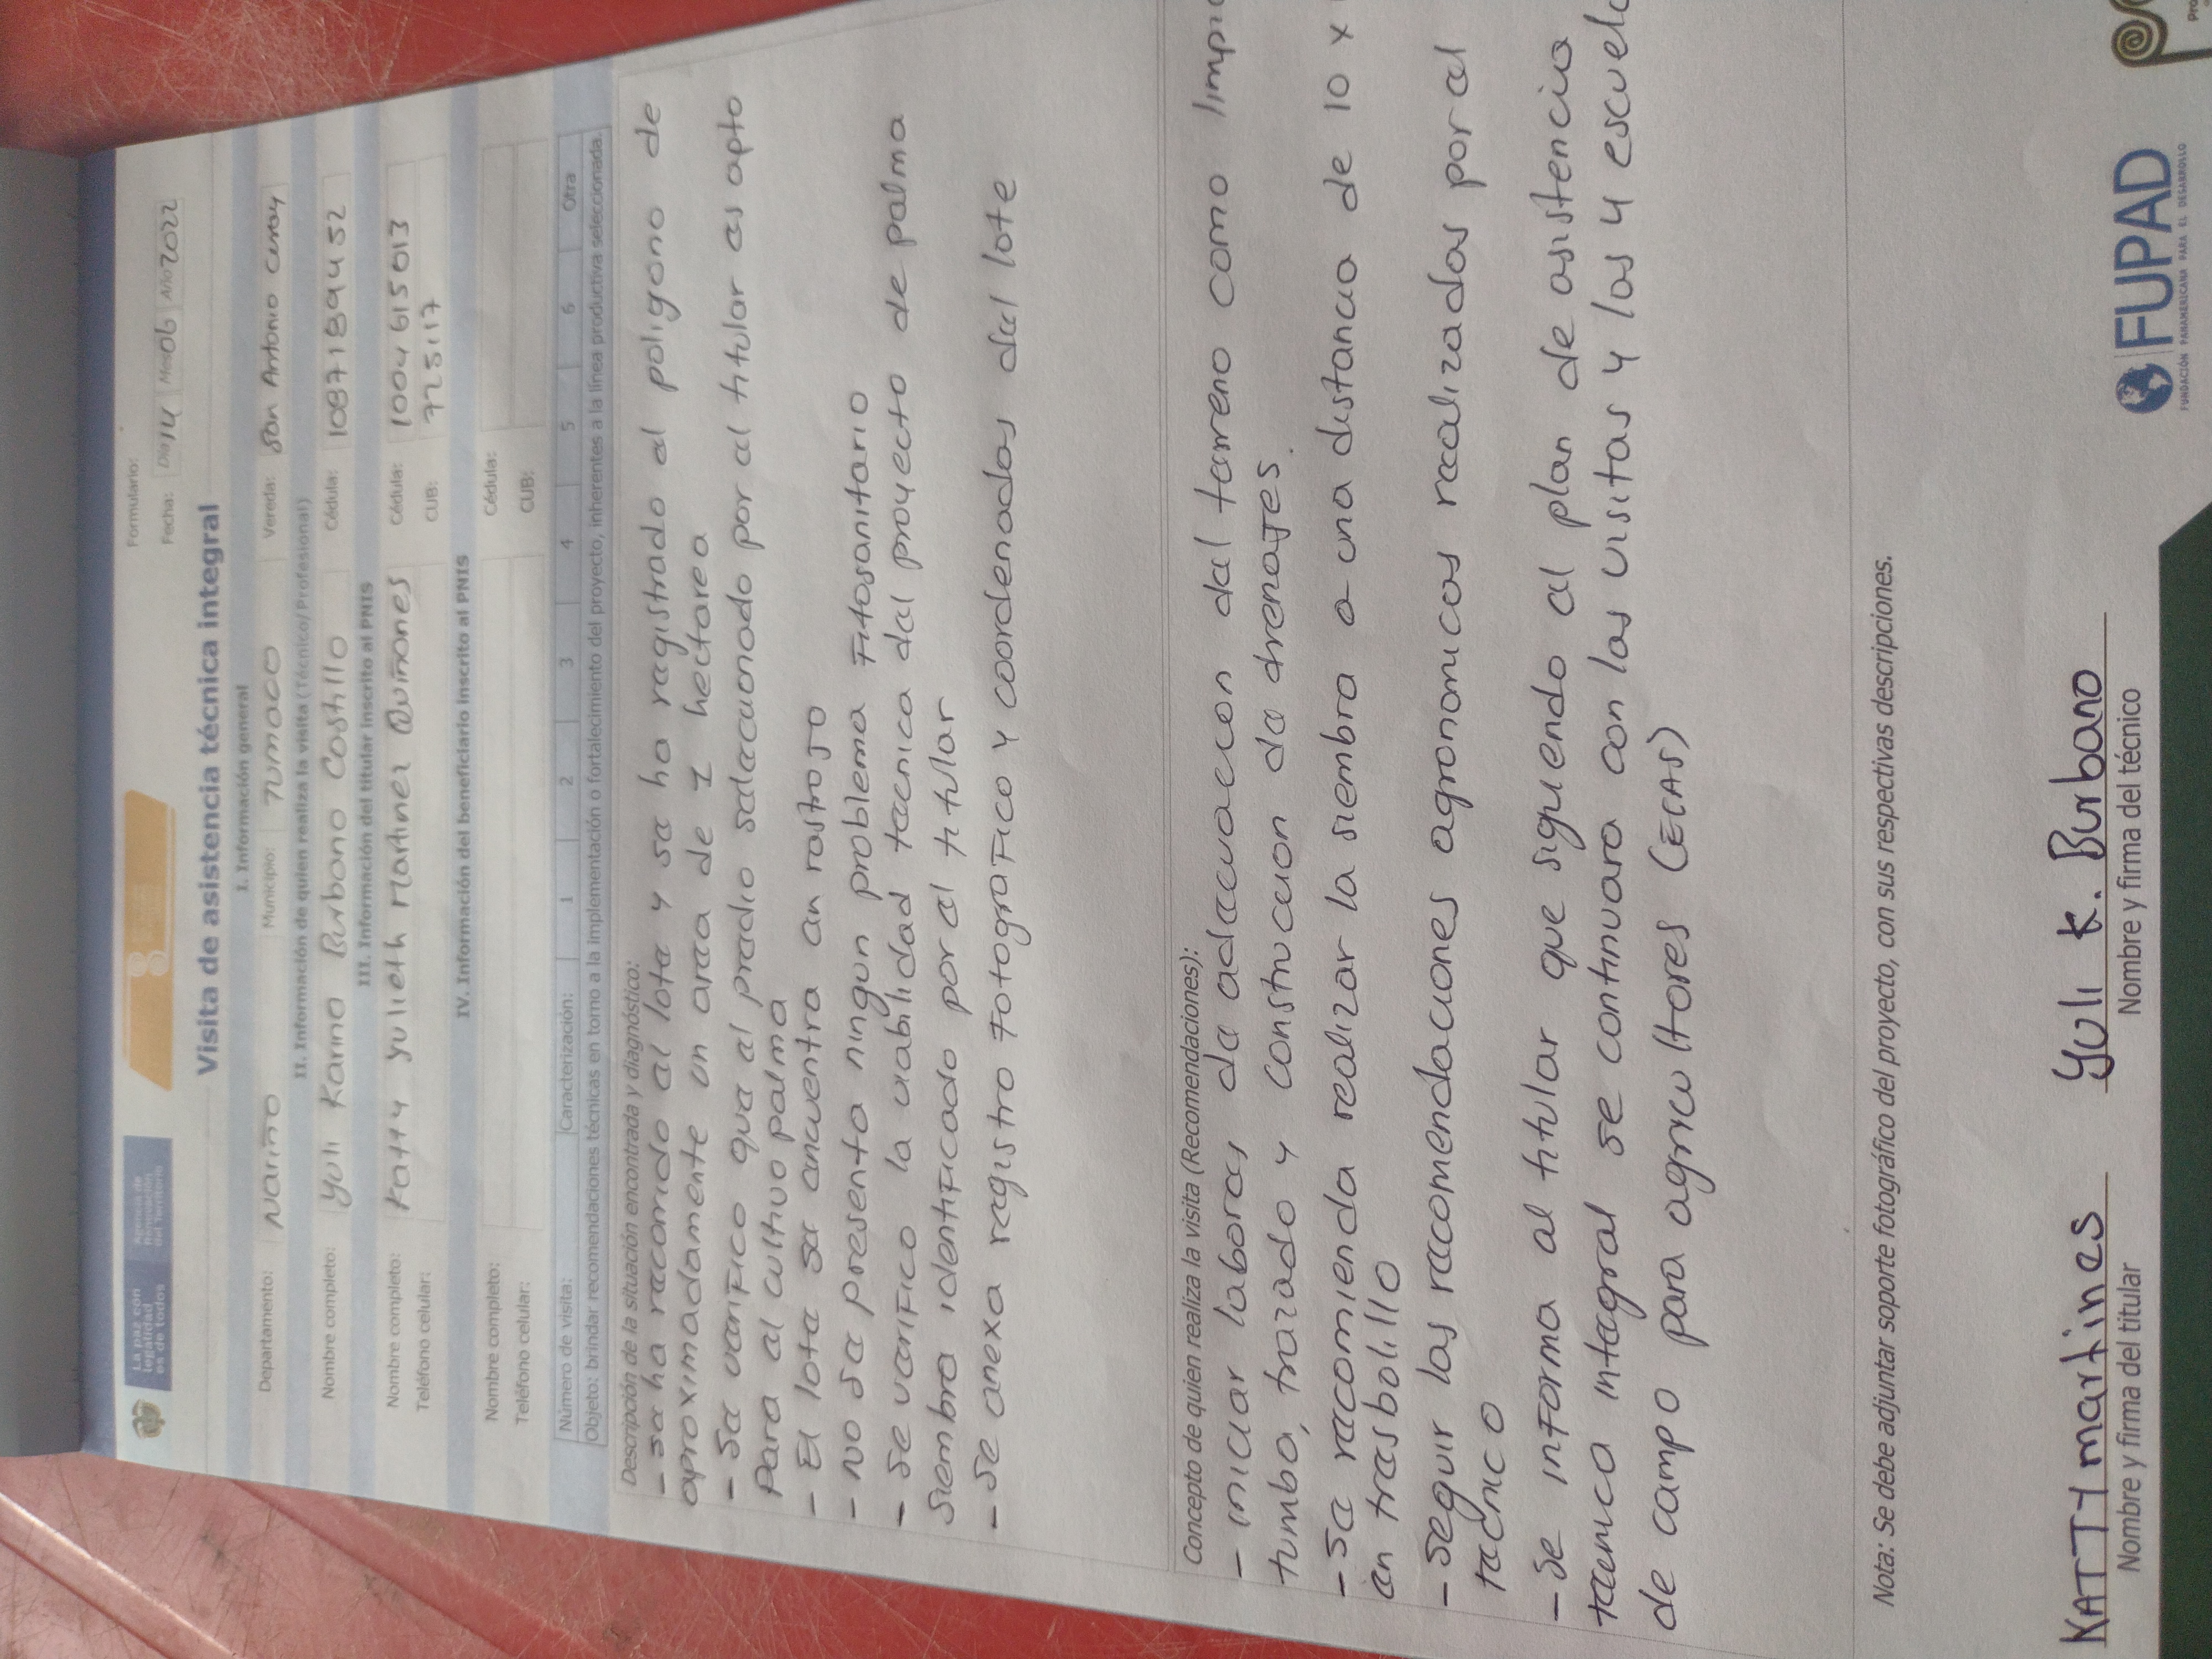 La paz con
legalidad
es de todos
Agencia de
Renovación
del Territorio
Formulario:
Fecha: Día 14 Mes 06 Año 2022
Visita de asistencia técnica integral
I. Información general
Departamento: Nariño Municipio: Tumaco Vereda: San Antonio curay
II. Información de quien realiza la visita (Técnico/Profesional)
Nombre completo: Yuli Karina Burbano Castillo Cédula: 1087189452
III. Información del titular inscrito al PNIS
Nombre completo: Katty Yulieth Martinez Quiñones Cédula: 1004615013
Teléfono celular: CUB: 725117
IV. Información del beneficiario inscrito al PNIS
Nombre completo: Cédula:
Teléfono celular: CUB:
Número de visita: Caracterización: 1 2 3 4 5 6 Otra
Objeto: brindar recomendaciones técnicas en torno a la implementación o fortalecimiento del proyecto, inherentes a la línea productiva seleccionada.
Descripción de la situación encontrada y diagnóstico:
- se ha recorrido el lote y se ha registrado el poligono de
aproximadamente un area de 1 hectarea
- Se verifico que el predio seleccuonado por el titular es apto
para el cultivo palma
- El lote se encuentra en rastrojo
- No se presenta ningun problema Fitosanitario
- Se verifico la viabilidad tecnica del proyecto de palma
siembra identificado por el titular
- Se anexa registro fotografico y coordenadas del lote
Concepto de quien realiza la visita (Recomendaciones):
- iniciar labores de adecuacion del terreno como
tumba, trazado y construccion de drenajes.
- Se recomienda realizar la siembra a una distancia de 10 x
en trasbolillo
- Seguir las recomendaciones agronomicas realizadas por el
tecnico
- Se informa al titular que siguendo el plan de asistencia
tecnica integral se continuara con las visitas y las 4
de campo para agricultores (ECAS)
Nota: Se debe adjuntar soporte fotográfico del proyecto, con sus respectivas descripciones.
KATTY martines Yuli K. Burbano
Nombre y firma del titular Nombre y firma del técnico
FUPAD
FUNDACIÓN PANAMERICANA PARA EL DESARROLLO